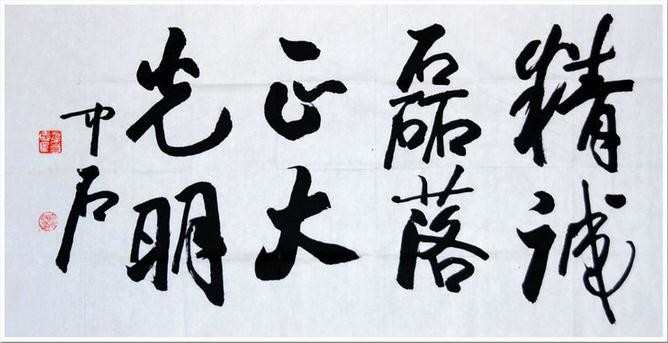 精诚
磊落
正大
光明
中石